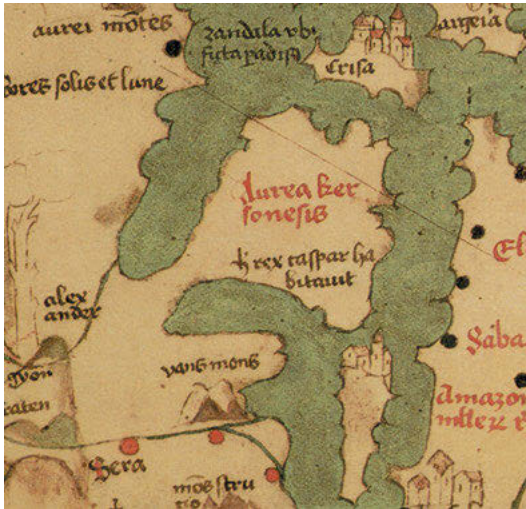 aurei mōtes
zandala vbi
ficta padisi
argeia
Crisa
bores solis et lune
Aurea ker
sonesis
h rex caspar ha
bitavit
alex
ander
El
Saba
yans mons
Amazon
Sera
mōs stru